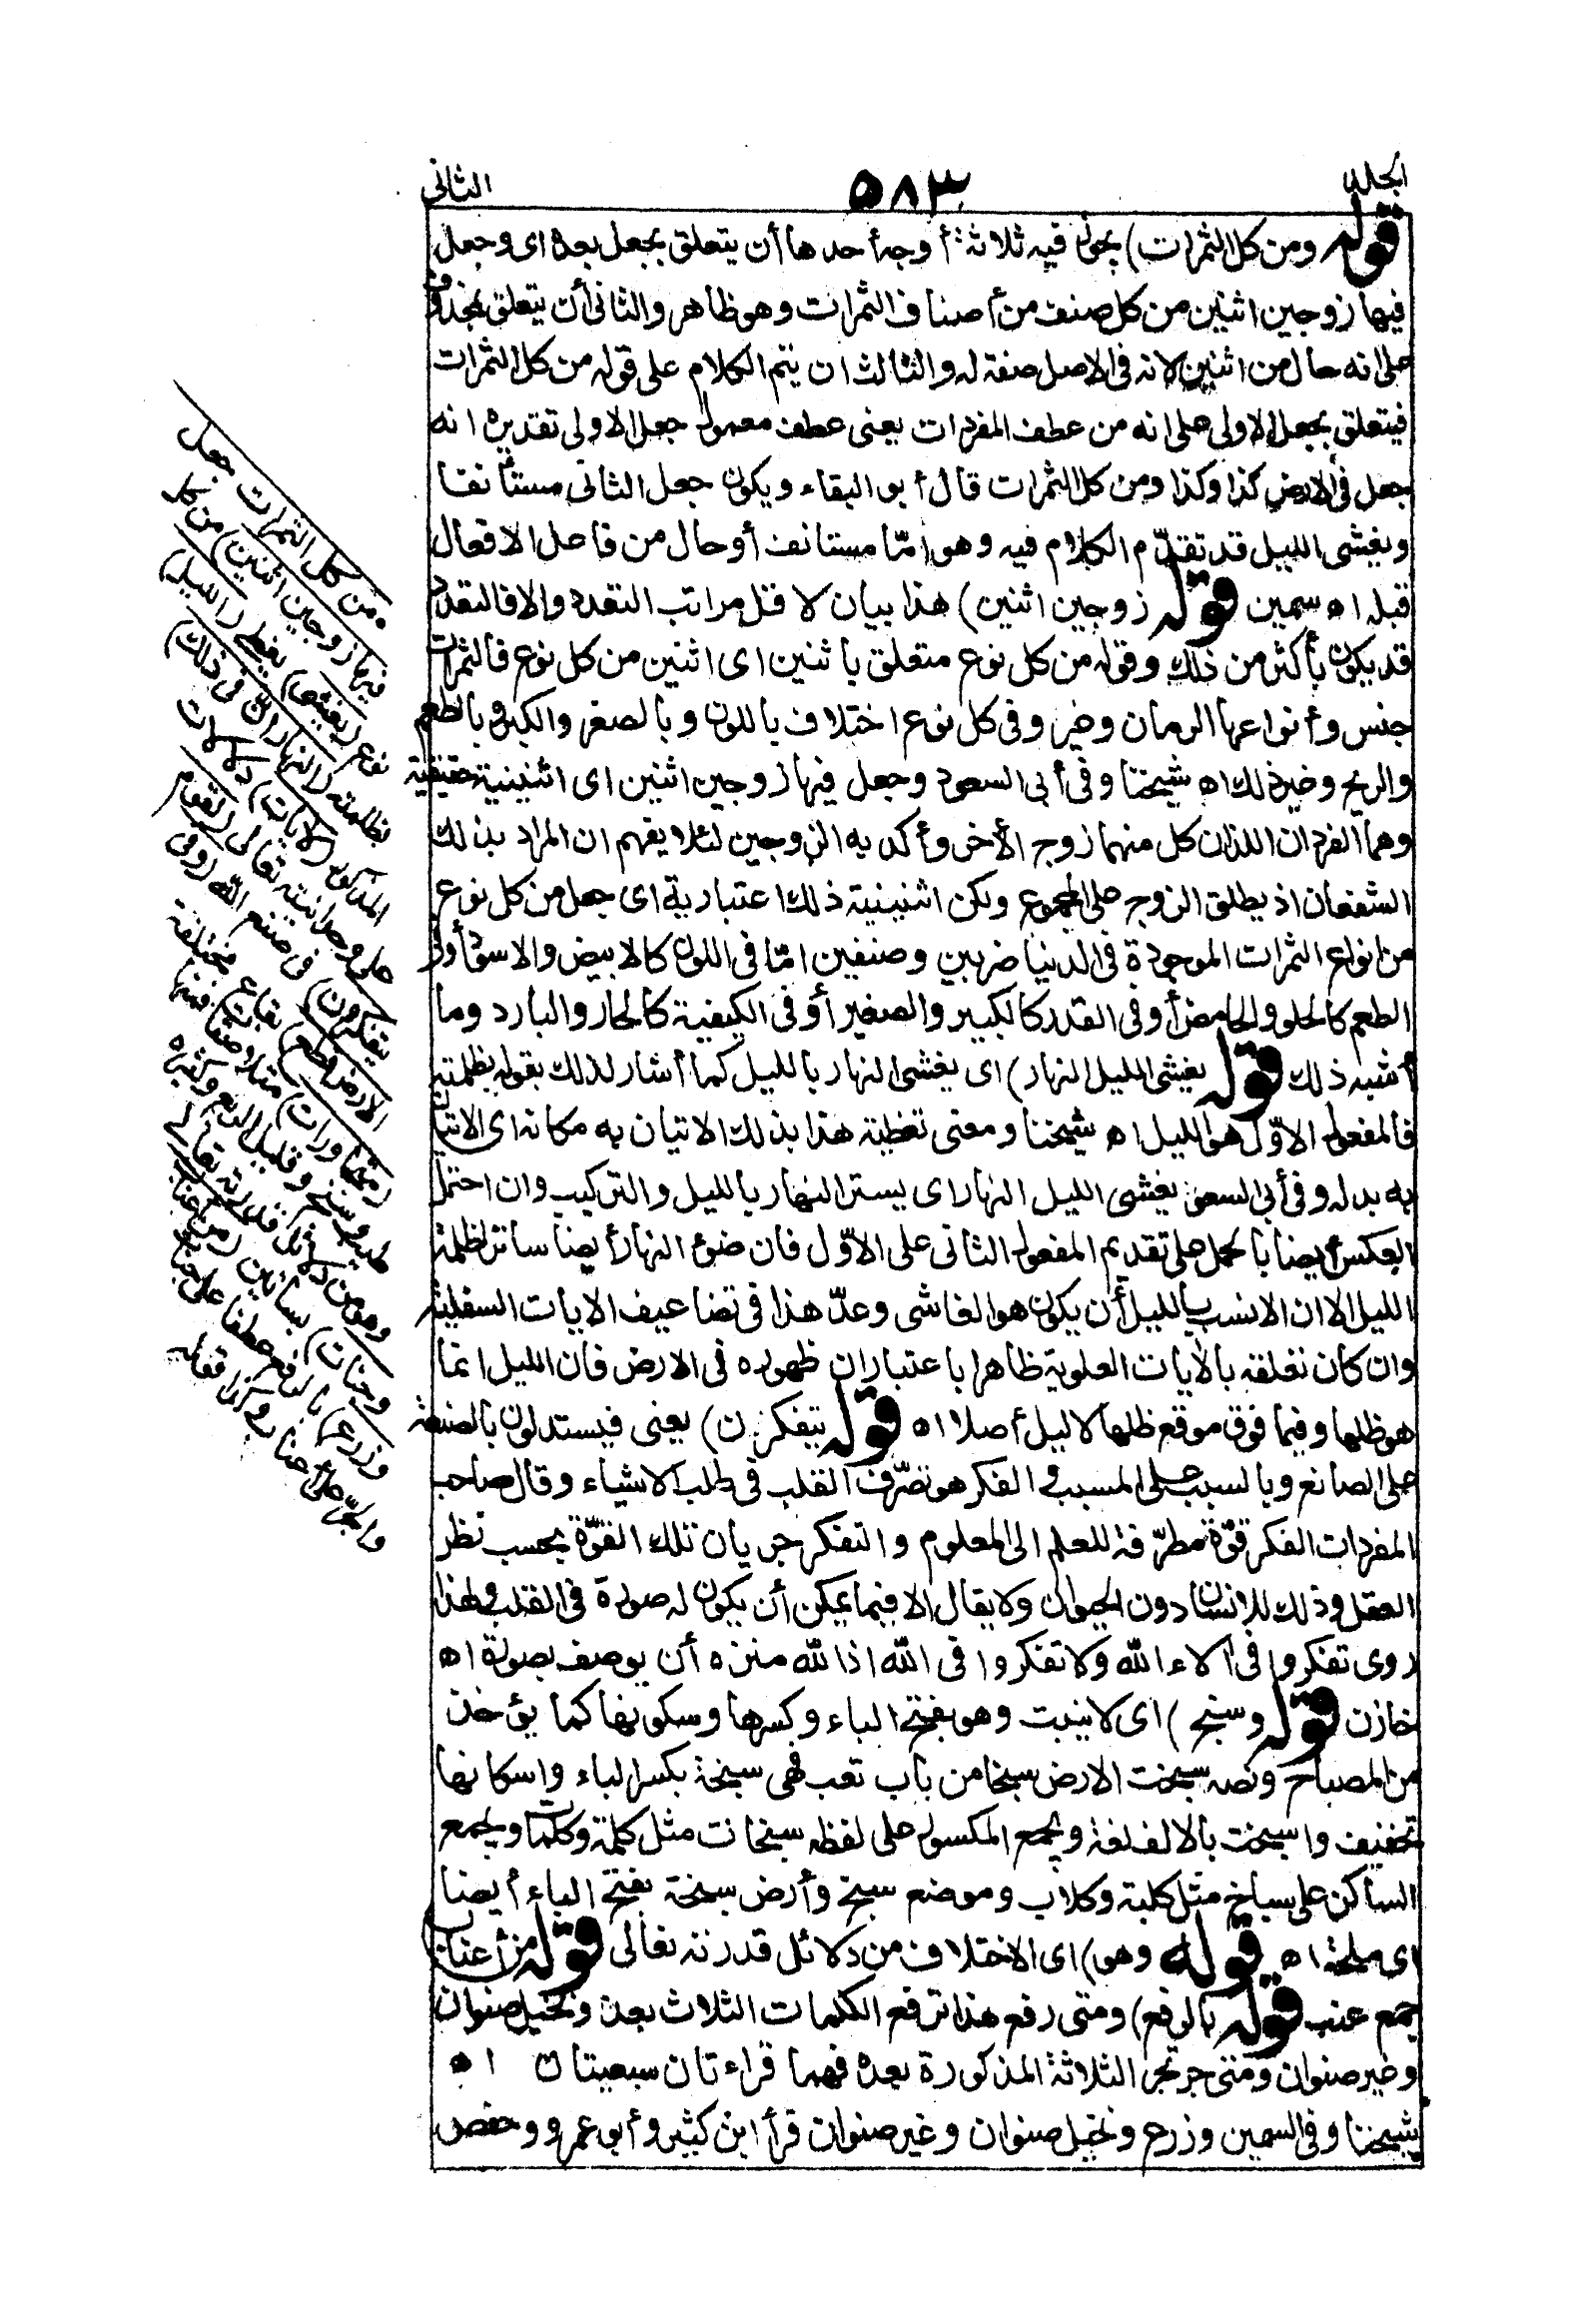 الجلد
٥٨٣
الثانى
قوله ومن كل الثمرات) يجوز فيه ثلاثة أوجه أحدها أن يتعلق بجعل بعده اى وجعل
فيها زوجين اثنين من كل صنف من أصناف الثمرات وهو ظاهر والثانى أن يتعلق بمحذوف
على انه حال من اثنين لانه فى الاصل صفة له والثالث ان يتم الكلام على قوله من كل الثمرات
فيتعلق بجعل الاولى على انه من عطف المفردات يعنى عطف معمول جعل الاولى تقديره انه
جعل فى الارض كذا وكذا ومن كل الثمرات قال أبو البقاء ويكون جعل الثانى مستأنفا
ويغشى الليل قد تقدّم الكلام فيه وهو امّا مستانف أو حال من فاعل الافعال
قبله اه سمين قوله زوجين اثنين) هذا بيان لاقل مراتب التعدد والا فالتعدد
قد يكون بأكثر من ذلك وقوله من كل نوع متعلق باثنين اى اثنين من كل نوع فالثمرات
جنس وأنواعها الرمان وغيره وفى كل نوع اختلاف باللون وبالصغر والكبر وبالطعم
والريح وغير ذلك اه شيخنا وفى أبى السعود وجعل فيها زوجين اثنين اى اثنينية حقيقية
وهما الفردان اللذان كل منهما زوج الأخر وأكد به الزوجين لئلا يفهم ان المراد بذلك
الشفعان اذ يطلق الزوج على المجموع ولكن اثنينية ذلك اعتبارية اى جعل من كل نوع
من انواع الثمرات الموجودة فى الدنيا ضربين وصنفين امّا فى اللون كالابيض والاسود أو فى
الطعم كالحلو والحامض أو فى القدر كالكبير والصغير أو فى الكيفية كالحار والبارد وما
أشبه ذلك قوله يغشى الليل النهار) اى يغشى النهار بالليل كما أشار لذلك بقوله بظلمته
فالمفعول الاوّل هو الليل اه شيخنا ومعنى تغطية هذا بذلك الاتيان به مكانه اى الاتيان
به بدله وفى أبى السعود يغشى الليل النهار اى يستر النهار بالليل والتركيب وان احتمل
العكس أيضا بالحمل على تقديم المفعول الثانى على الاوّل فان ضوء النهار أيضا ساتر لظلمة
الليل الا ان الانسب بالليل أن يكون هو الغاشى وعدّ هذا فى تضاعيف الايات السفلية
وان كان تعلقه بالأيات العلوية ظاهرا باعتبار ان ظهوره فى الارض فان الليل انما
هو ظلها وفيما فوق موقع ظلها لا ليل أصلا اه قوله يتفكرون) يعنى فيستدلون بالصنعة
على الصانع وبالسبب على المسبب والفكر هو تصرّف القلب فى طلب الاشياء وقال صاحب
المفردات الفكر قوّة مطرّقة للعلم الى المعلوم والتفكر جريان تلك القوّة بحسب نظر
العقل وذلك للانسان دون الحيوان ولا يقال الا فيما يمكن أن يكون له صورة فى القلب ولهذا
روى تفكروا فى آلاء الله ولا تفكروا فى الله اذ الله منزه أن يوصف بصورة اه
خازن قوله وسبخ) اى لا ينبت وهو بفتح الباء وكسرها وسكونها كما يؤخذ
من المصباح ونصه سبخت الارض سبخا من باب تعب فهى سبخة بكسر الباء واسكانها
تخفيف واسبخت بالالف لغة ويجمع المكسور على لفظه سبخات مثل كلمة وكلمات ويجمع
الساكن على سباخ مثل كلبة وكلاب وموضع سبخ وأرض سبخة بفتح الباء أيضا
اى ملحة اه قوله وهو) اى الاختلاف من دلائل قدرته تعالى قوله من أعناب)
جمع عنب قوله بالرفع) ومتى رفع هذا ترفع الكلمات الثلاث بعده ونخيل صنوان
وغير صنوان ومتى جر تجر الثلاثة المذكورة بعده فهما قراءتان سبعيتان اه
شيخنا وفى السمين وزرع ونخيل صنوان وغير صنوان قرأ ابن كثير وأبو عمرو وحفص
ومن كل الثمرات جعل
فيها زوجين اثنين) من كل
نوع (يغشى) يغطى (الليل)
بظلمته (النهار ان فى ذلك)
المذكور (لآيات) دلالات
على وحدانيته تعالى (لقوم
يتفكرون) فى صنع الله (وفى
الارض قطع) بقاع مختلفة
(متجاورات) متلاصقات فمنها
طيب وسبخ وقليل الريع وكثيره
وهو من دلائل قدرته تعالى
(وجنات) بساتين (من أعناب
وزرع) بالرفع عطفا على جنات
والجرّ على أعناب وكذا قوله